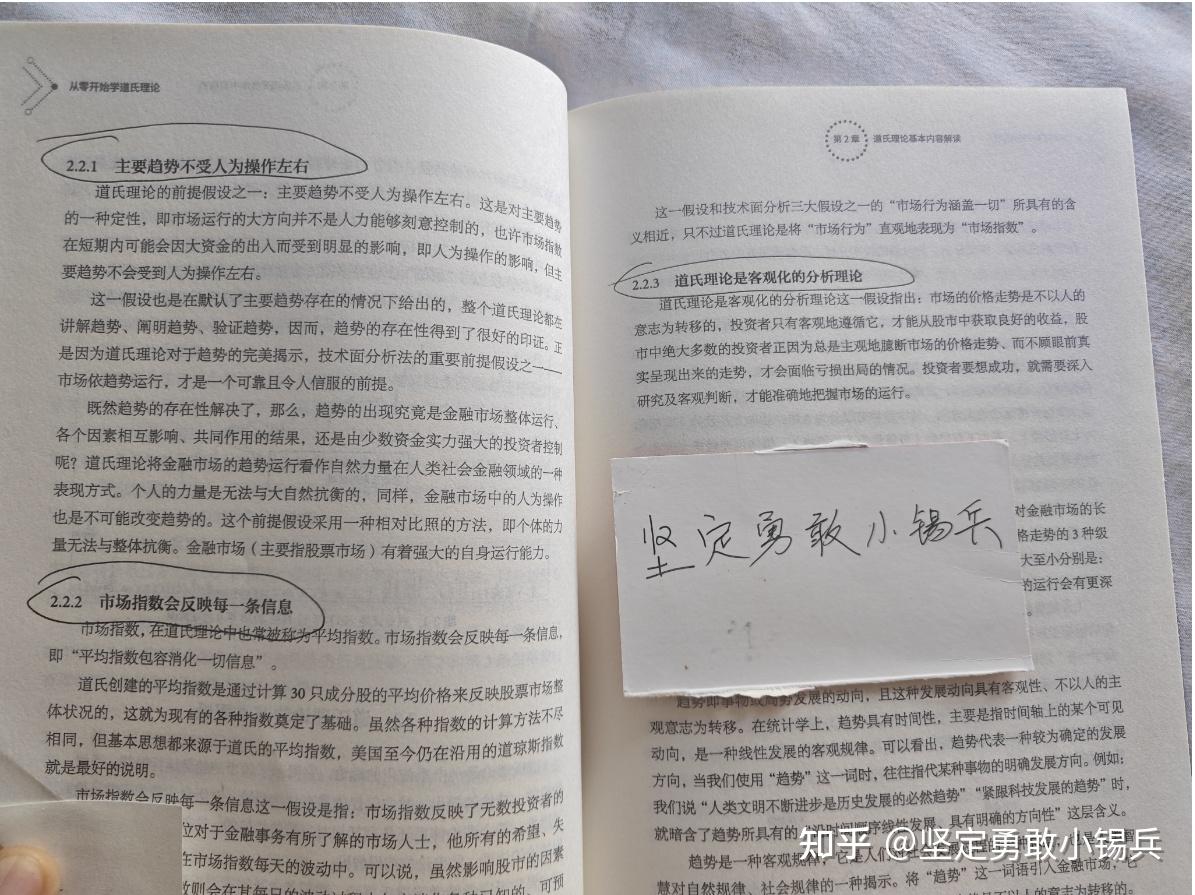 从零开始学道氏理论
2.2.1 主要趋势不受人为操作左右
道氏理论的前提假设之一：主要趋势不受人为操作左右。这是对主要趋势
的一种定性，即市场运行的大方向并不是人力能够刻意控制的，也许市场指数
在短期内可能会因大资金的出入而受到明显的影响，即人为操作的影响，但主
要趋势不会受到人为操作左右。
这一假设也是在默认了主要趋势存在的情况下给出的，整个道氏理论都在
讲解趋势、阐明趋势、验证趋势，因而，趋势的存在性得到了很好的印证。正
是因为道氏理论对于趋势的完美揭示，技术面分析法的重要前提假设之一——
市场依趋势运行，才是一个可靠且令人信服的前提。
既然趋势的存在性解决了，那么，趋势的出现究竟是金融市场整体运行、
各个因素相互影响、共同作用的结果，还是由少数资金实力强大的投资者控制
呢？道氏理论将金融市场的趋势运行看作自然力量在人类社会金融领域的一种
表现方式。个人的力量是无法与大自然抗衡的，同样，金融市场中的人为操作
也是不可能改变趋势的。这个前提假设采用一种相对比照的方法，即个体的力
量无法与整体抗衡。金融市场（主要指股票市场）有着强大的自身运行能力。
2.2.2 市场指数会反映每一条信息
市场指数，在道氏理论中也常被称为平均指数。市场指数会反映每一条信息，
即“平均指数包容消化一切信息”。
道氏创建的平均指数是通过计算 30 只成分股的平均价格来反映股票市场整
体状况的，这就为现有的各种指数奠定了基础。虽然各种指数的计算方法不尽
相同，但基本思想都来源于道氏的平均指数，美国至今仍在沿用的道琼斯指数
就是最好的说明。
市场指数会反映每一条信息这一假设是指：市场指数反映了无数投资者的
位对于金融事务有所了解的市场人士，他所有的希望、失
在市场指数每天的波动中。可以说，虽然影响股市的因素
第 2 章 道氏理论基本内容解读
这一假设和技术面分析三大假设之一的“市场行为涵盖一切”所具有的含
义相近，只不过道氏理论是将“市场行为”直观地表现为“市场指数”。
2.2.3 道氏理论是客观化的分析理论
道氏理论是客观化的分析理论这一假设指出：市场的价格走势是不以人的
意志为转移的，投资者只有客观地遵循它，才能从股市中获取良好的收益，股
市中绝大多数的投资者正因为总是主观地臆断市场的价格走势、而不顾眼前真
实呈现出来的走势，才会面临亏损出局的情况。投资者要想成功，就需要深入
研究及客观判断，才能准确地把握市场的运行。
对金融市场的长
格走势的 3 种级
大至小分别是：
的运行会有更深
坚定勇敢小锡兵
趋势即事物或局势发展的动向，且这种发展动向具有客观性、不以人的主
观意志为转移。在统计学上，趋势具有时间性，主要是指时间轴上的某个可见
动向，是一种线性发展的客观规律。可以看出，趋势代表一种较为确定的发展
方向，当我们使用“趋势”这一词时，往往指代某种事物的明确发展方向。例如：
我们说“人类文明不断进步是历史发展的必然趋势”“紧眼科技发展的趋势”时，
就暗含了趋势所具有的、沿时间顺序线性发展、具有明确的方向性”这层含义。
趋势是一种客观规律，
慧对自然规律、社会规律的一种揭示。将“趋势”这一词语引入金融市场，它
知乎 @坚定勇敢小锡兵